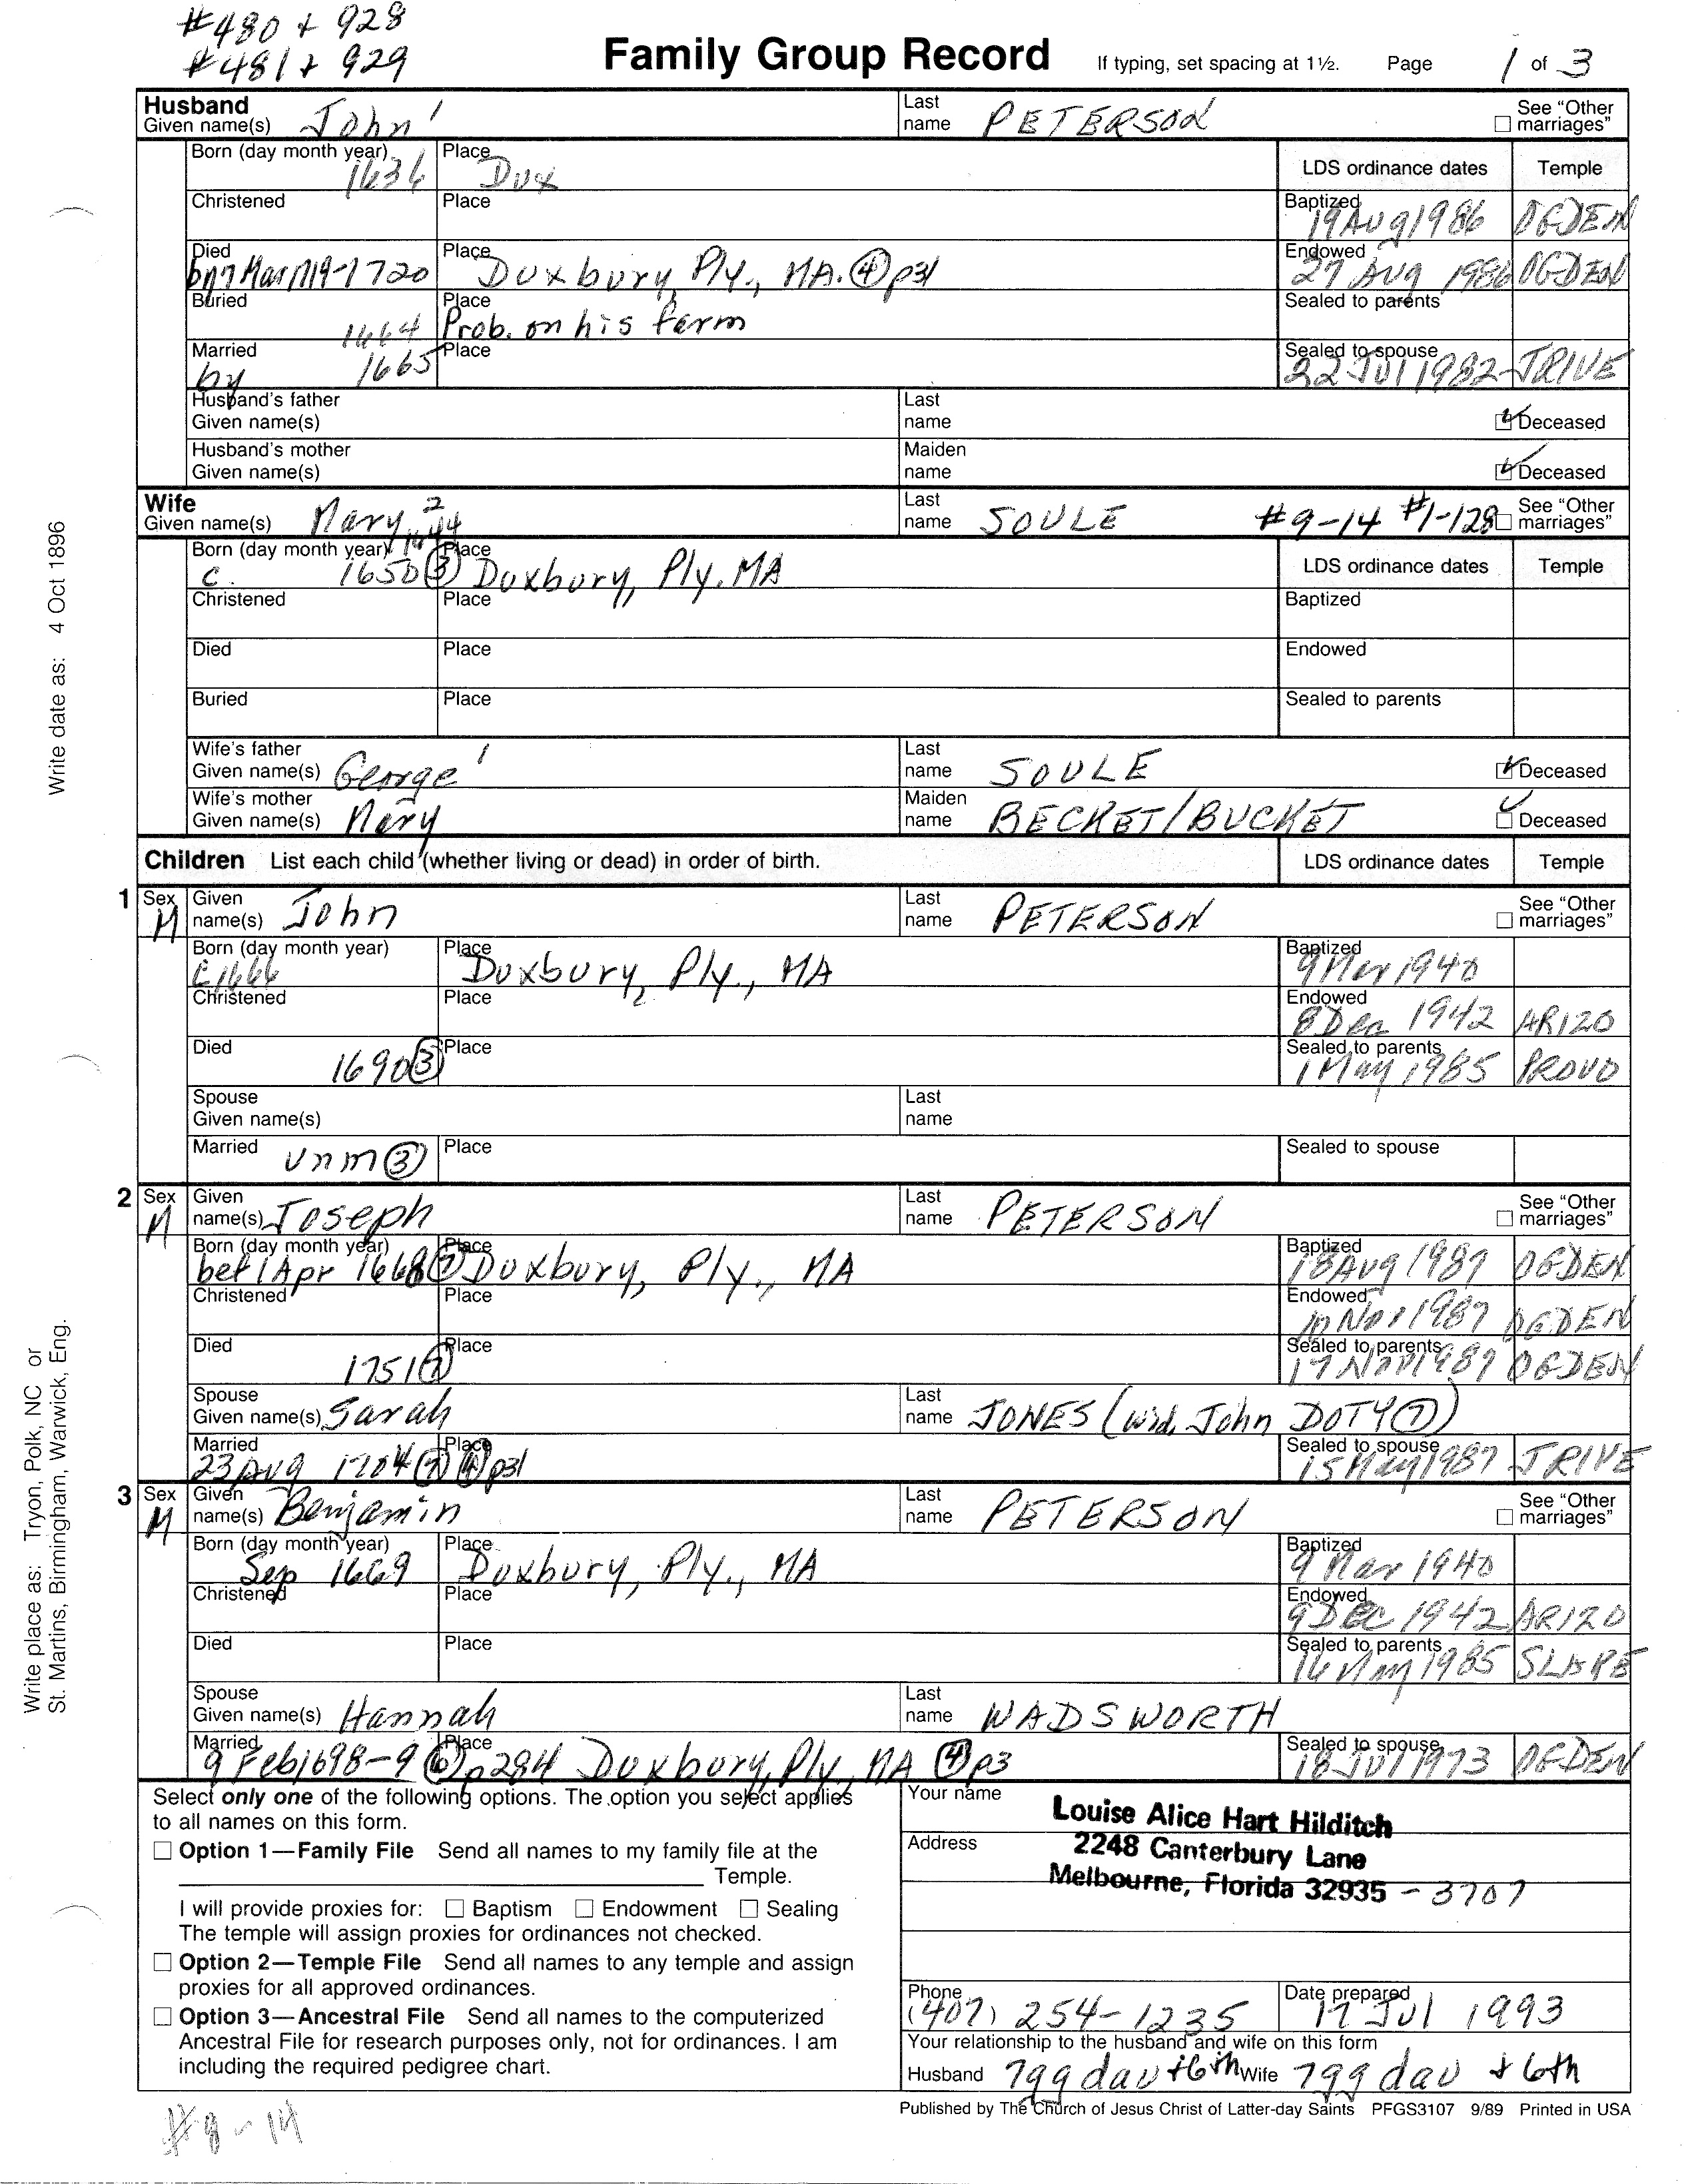 #480 + 928
#481 + 929
Family Group Record If typing, set spacing at 1½. Page 1 of 3
Husband
Given name(s) John 1 Last name PETERSON See "Other marriages"
Born (day month year) 1636 Place Dux LDS ordinance dates Temple
Christened Place Baptized 19 Aug 1986 OGDEN
Died by 7 Mar 1719-1720 Place Duxbury, Ply., MA. ④ p31 Endowed 27 Aug 1986 OGDEN
Buried Place Prob. on his farm Sealed to parents
Married by 1664 1665 Place Sealed to spouse 22 Jul 1982 JRIVE
Husband's father
Given name(s) Last name Deceased
Husband's mother
Given name(s) Maiden name Deceased
Wife
Given name(s) Mary 2 Last name SOULE #9-14 #1-128 See "Other marriages"
Born (day month year) 1644 c. 1650 ③ Place Duxbury, Ply. MA LDS ordinance dates Temple
Christened Place Baptized
Died Place Endowed
Buried Place Sealed to parents
Wife's father
Given name(s) George 1 Last name SOULE Deceased
Wife's mother
Given name(s) Mary Maiden name BECKET/BUCKET Deceased
Children List each child (whether living or dead) in order of birth. LDS ordinance dates Temple
1 Sex M Given name(s) John Last name PETERSON See "Other marriages"
Born (day month year) C1666 Place Duxbury, Ply., MA Baptized 9 Mar 1940
Christened Place Endowed 8 Dec 1942 ARIZO
Died 1690 ③ Place Sealed to parents 1 May 1985 PROVO
Spouse
Given name(s) Last name
Married Unm ③ Place Sealed to spouse
2 Sex M Given name(s) Joseph Last name PETERSON See "Other marriages"
Born (day month year) bef 1 Apr 1668 ⑦ Place Duxbury, Ply., MA Baptized 18 Aug 1987 OGDEN
Christened Place Endowed 10 Nov 1987 OGDEN
Died 1751 ⑦ Place Sealed to parents 17 Nov 1987 OGDEN
Spouse
Given name(s) Sarah Last name JONES (wid. John DOTY ⑦)
Married 23 Aug 1704 ⑦ ④ p31 Place Sealed to spouse 15 May 1987 JRIVE
3 Sex M Given name(s) Benjamin Last name PETERSON See "Other marriages"
Born (day month year) Sep 1669 Place Duxbury, Ply., MA Baptized 9 Mar 1940
Christened Place Endowed 9 DEC 1942 ARIZO
Died Place Sealed to parents 16 May 1985 SLAKE
Spouse
Given name(s) Hannah Last name WADSWORTH
Married 9 Feb 1698-9 ⑥ p284 Place Duxbury, Ply, MA ④ p3 Sealed to spouse 18 Jul 1973 OGDEN
Select only one of the following options. The option you select applies
to all names on this form.
Option 1—Family File Send all names to my family file at the
Temple.
I will provide proxies for: Baptism Endowment Sealing
The temple will assign proxies for ordinances not checked.
Option 2—Temple File Send all names to any temple and assign
proxies for all approved ordinances.
Option 3—Ancestral File Send all names to the computerized
Ancestral File for research purposes only, not for ordinances. I am
including the required pedigree chart.
Your name Louise Alice Hart Hilditch
Address 2248 Canterbury Lane
Melbourne, Florida 32935 - 3707
Phone (407) 254-1235 Date prepared 17 Jul 1993
Your relationship to the husband and wife on this form
Husband 7gg dau + 6th Wife 7gg dau + 6th
Published by The Church of Jesus Christ of Latter-day Saints PFGS3107 9/89 Printed in USA
#9-14
Write date as: 4 Oct 1896
Write place as: Tryon, Polk, NC or
St. Martins, Birmingham, Warwick, Eng.